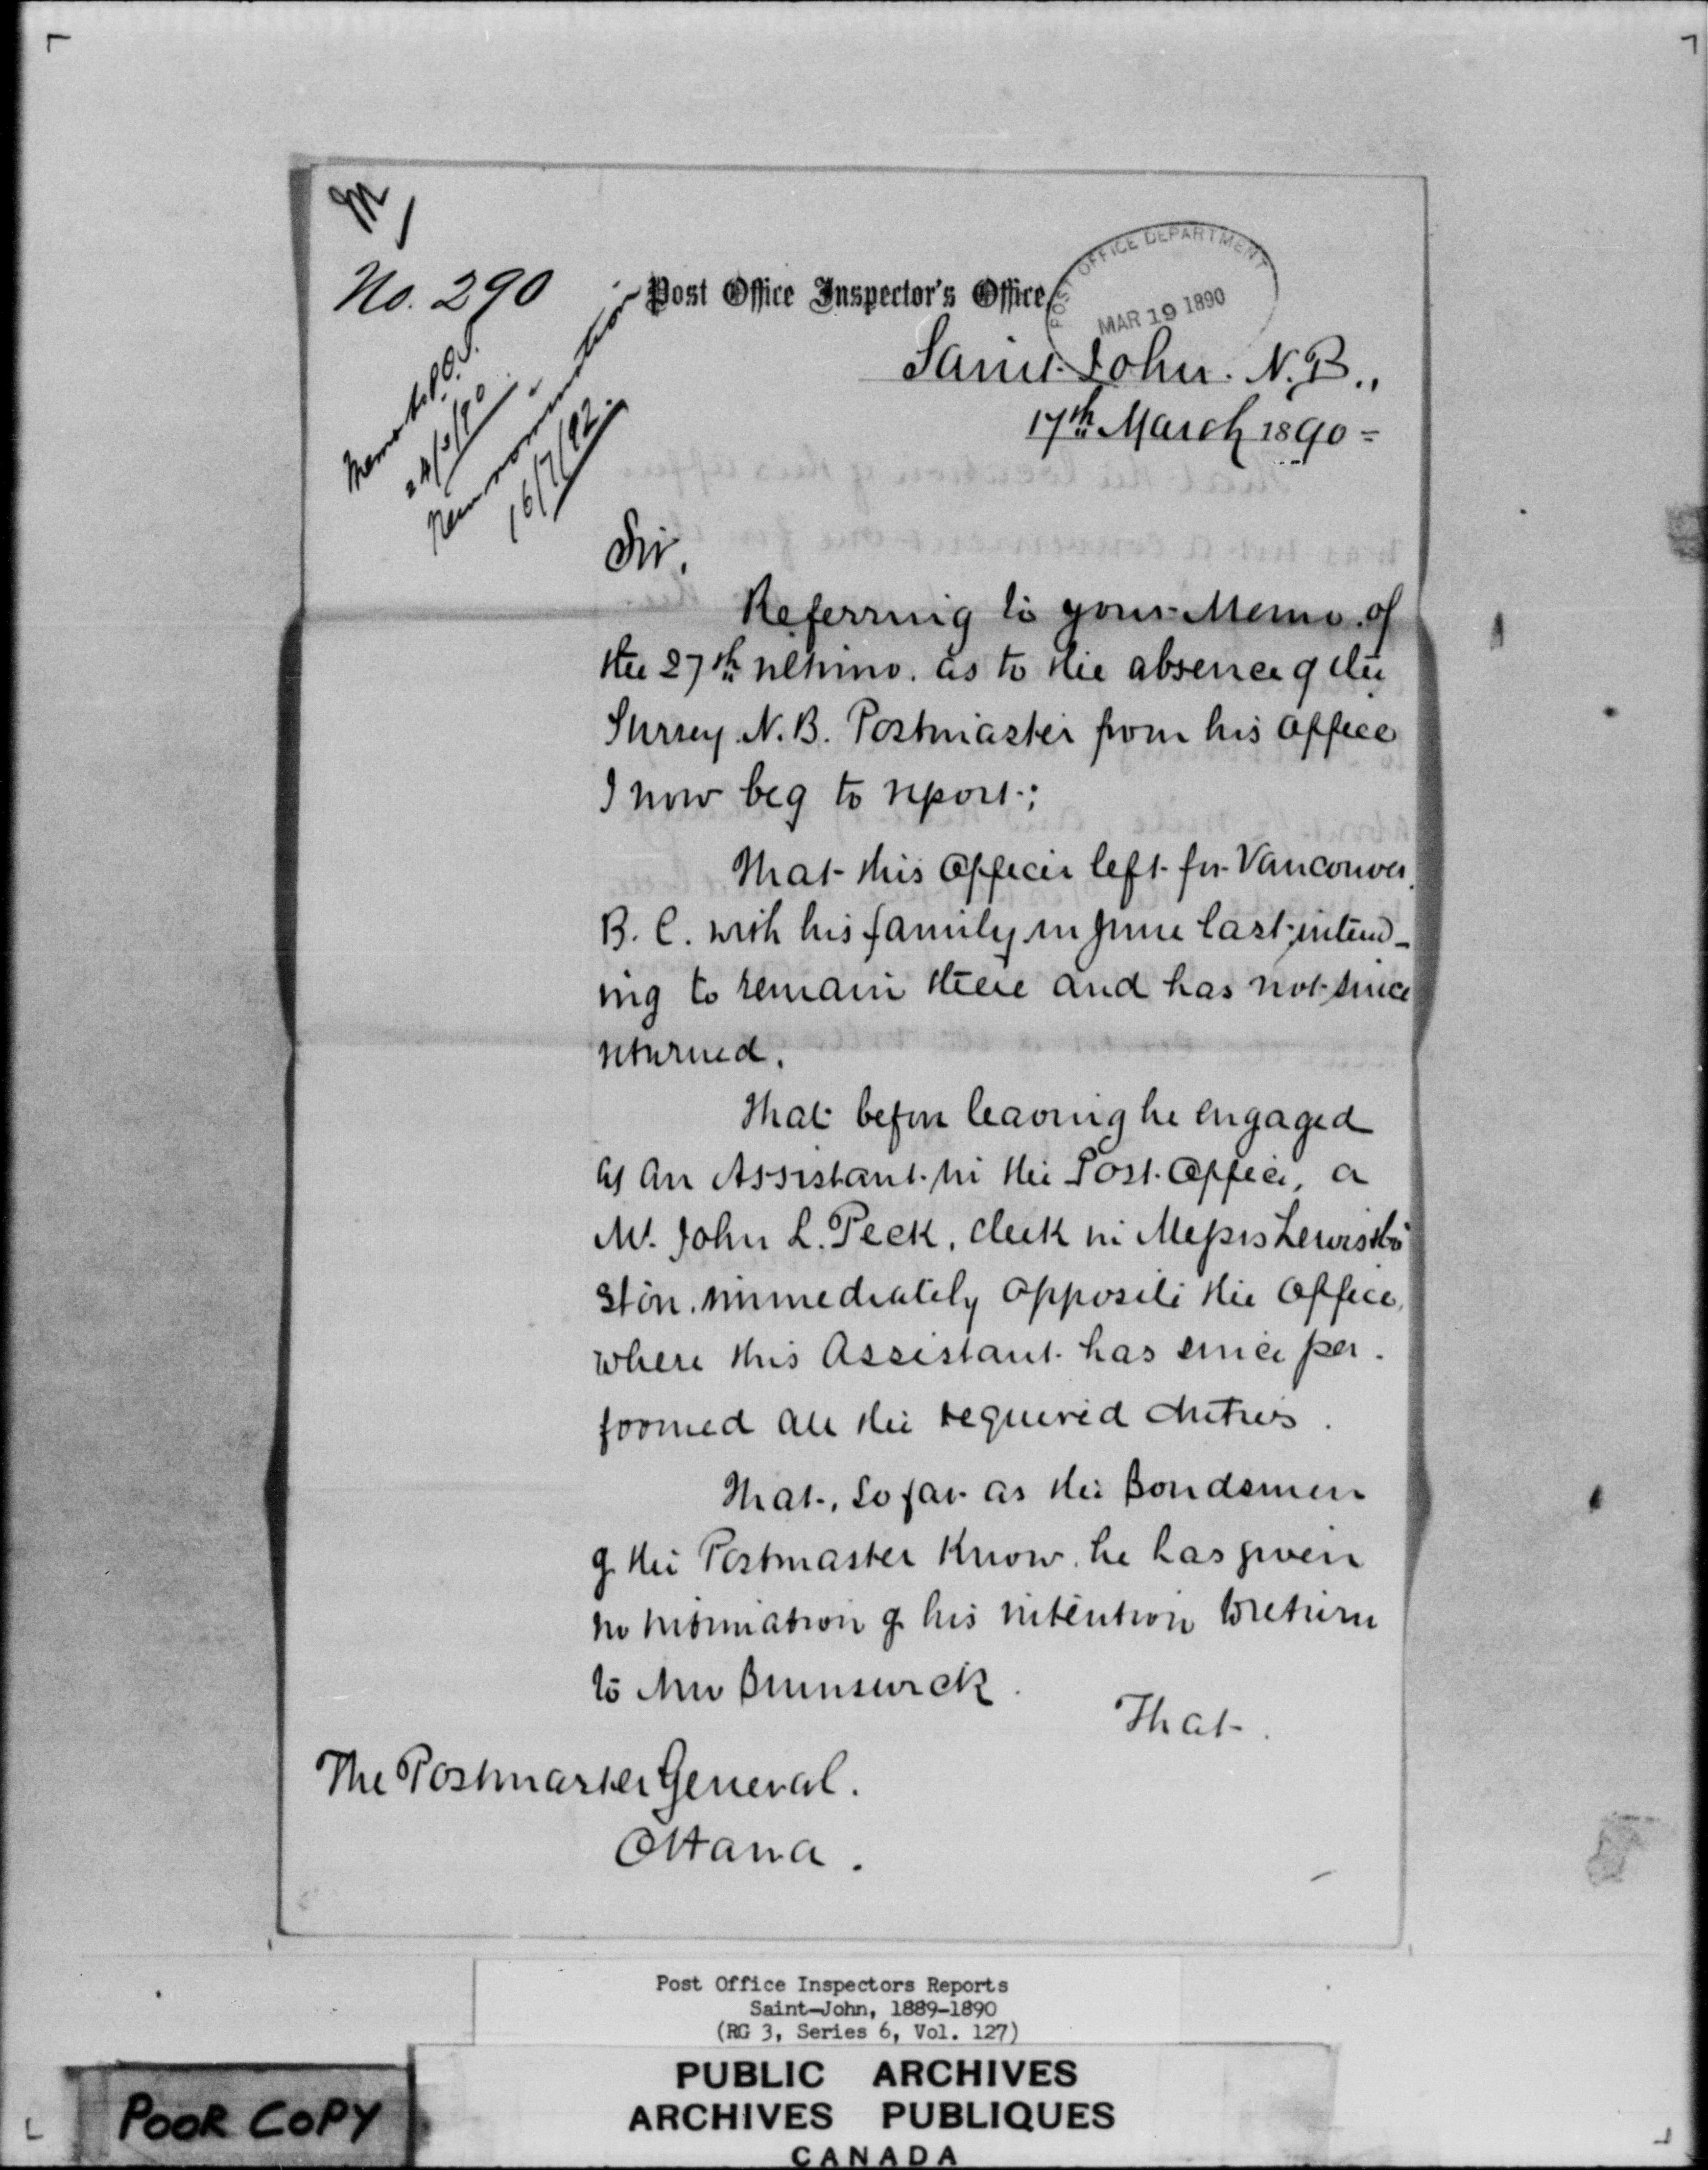 M
No. 290
Post Office Inspector's Office,
POST OFFICE DEPARTMENT
MAR 19 1890
Saint John. N.B.,
17th March 1890
Memo to P.O.I.
24/3/90
New nomination
16/7/92.
Sir,
Referring to your Memo. of
the 27th ultimo. as to the absence of the
Surrey N.B. Postmaster from his office
I now beg to report:;
That this officer left for Vancouver
B.C. with his family in June last intend-
ing to remain there and has not since
returned.
That before leaving he engaged
as an Assistant in the Post Office, a
Mr. John L. Peck, clerk in Messrs Lewis &
store immediately opposite the office,
where this Assistant has since per-
formed all the required duties.
That, so far as the Bondsmen
of the Postmaster know he has given
no intimation of his intention to return
to New Brunswick.
That
The Postmaster General.
Ottawa.
Post Office Inspectors Reports
Saint-John, 1889-1890
(RG 3, Series 6, Vol. 127)
PUBLIC ARCHIVES
ARCHIVES PUBLIQUES
CANADA
POOR COPY